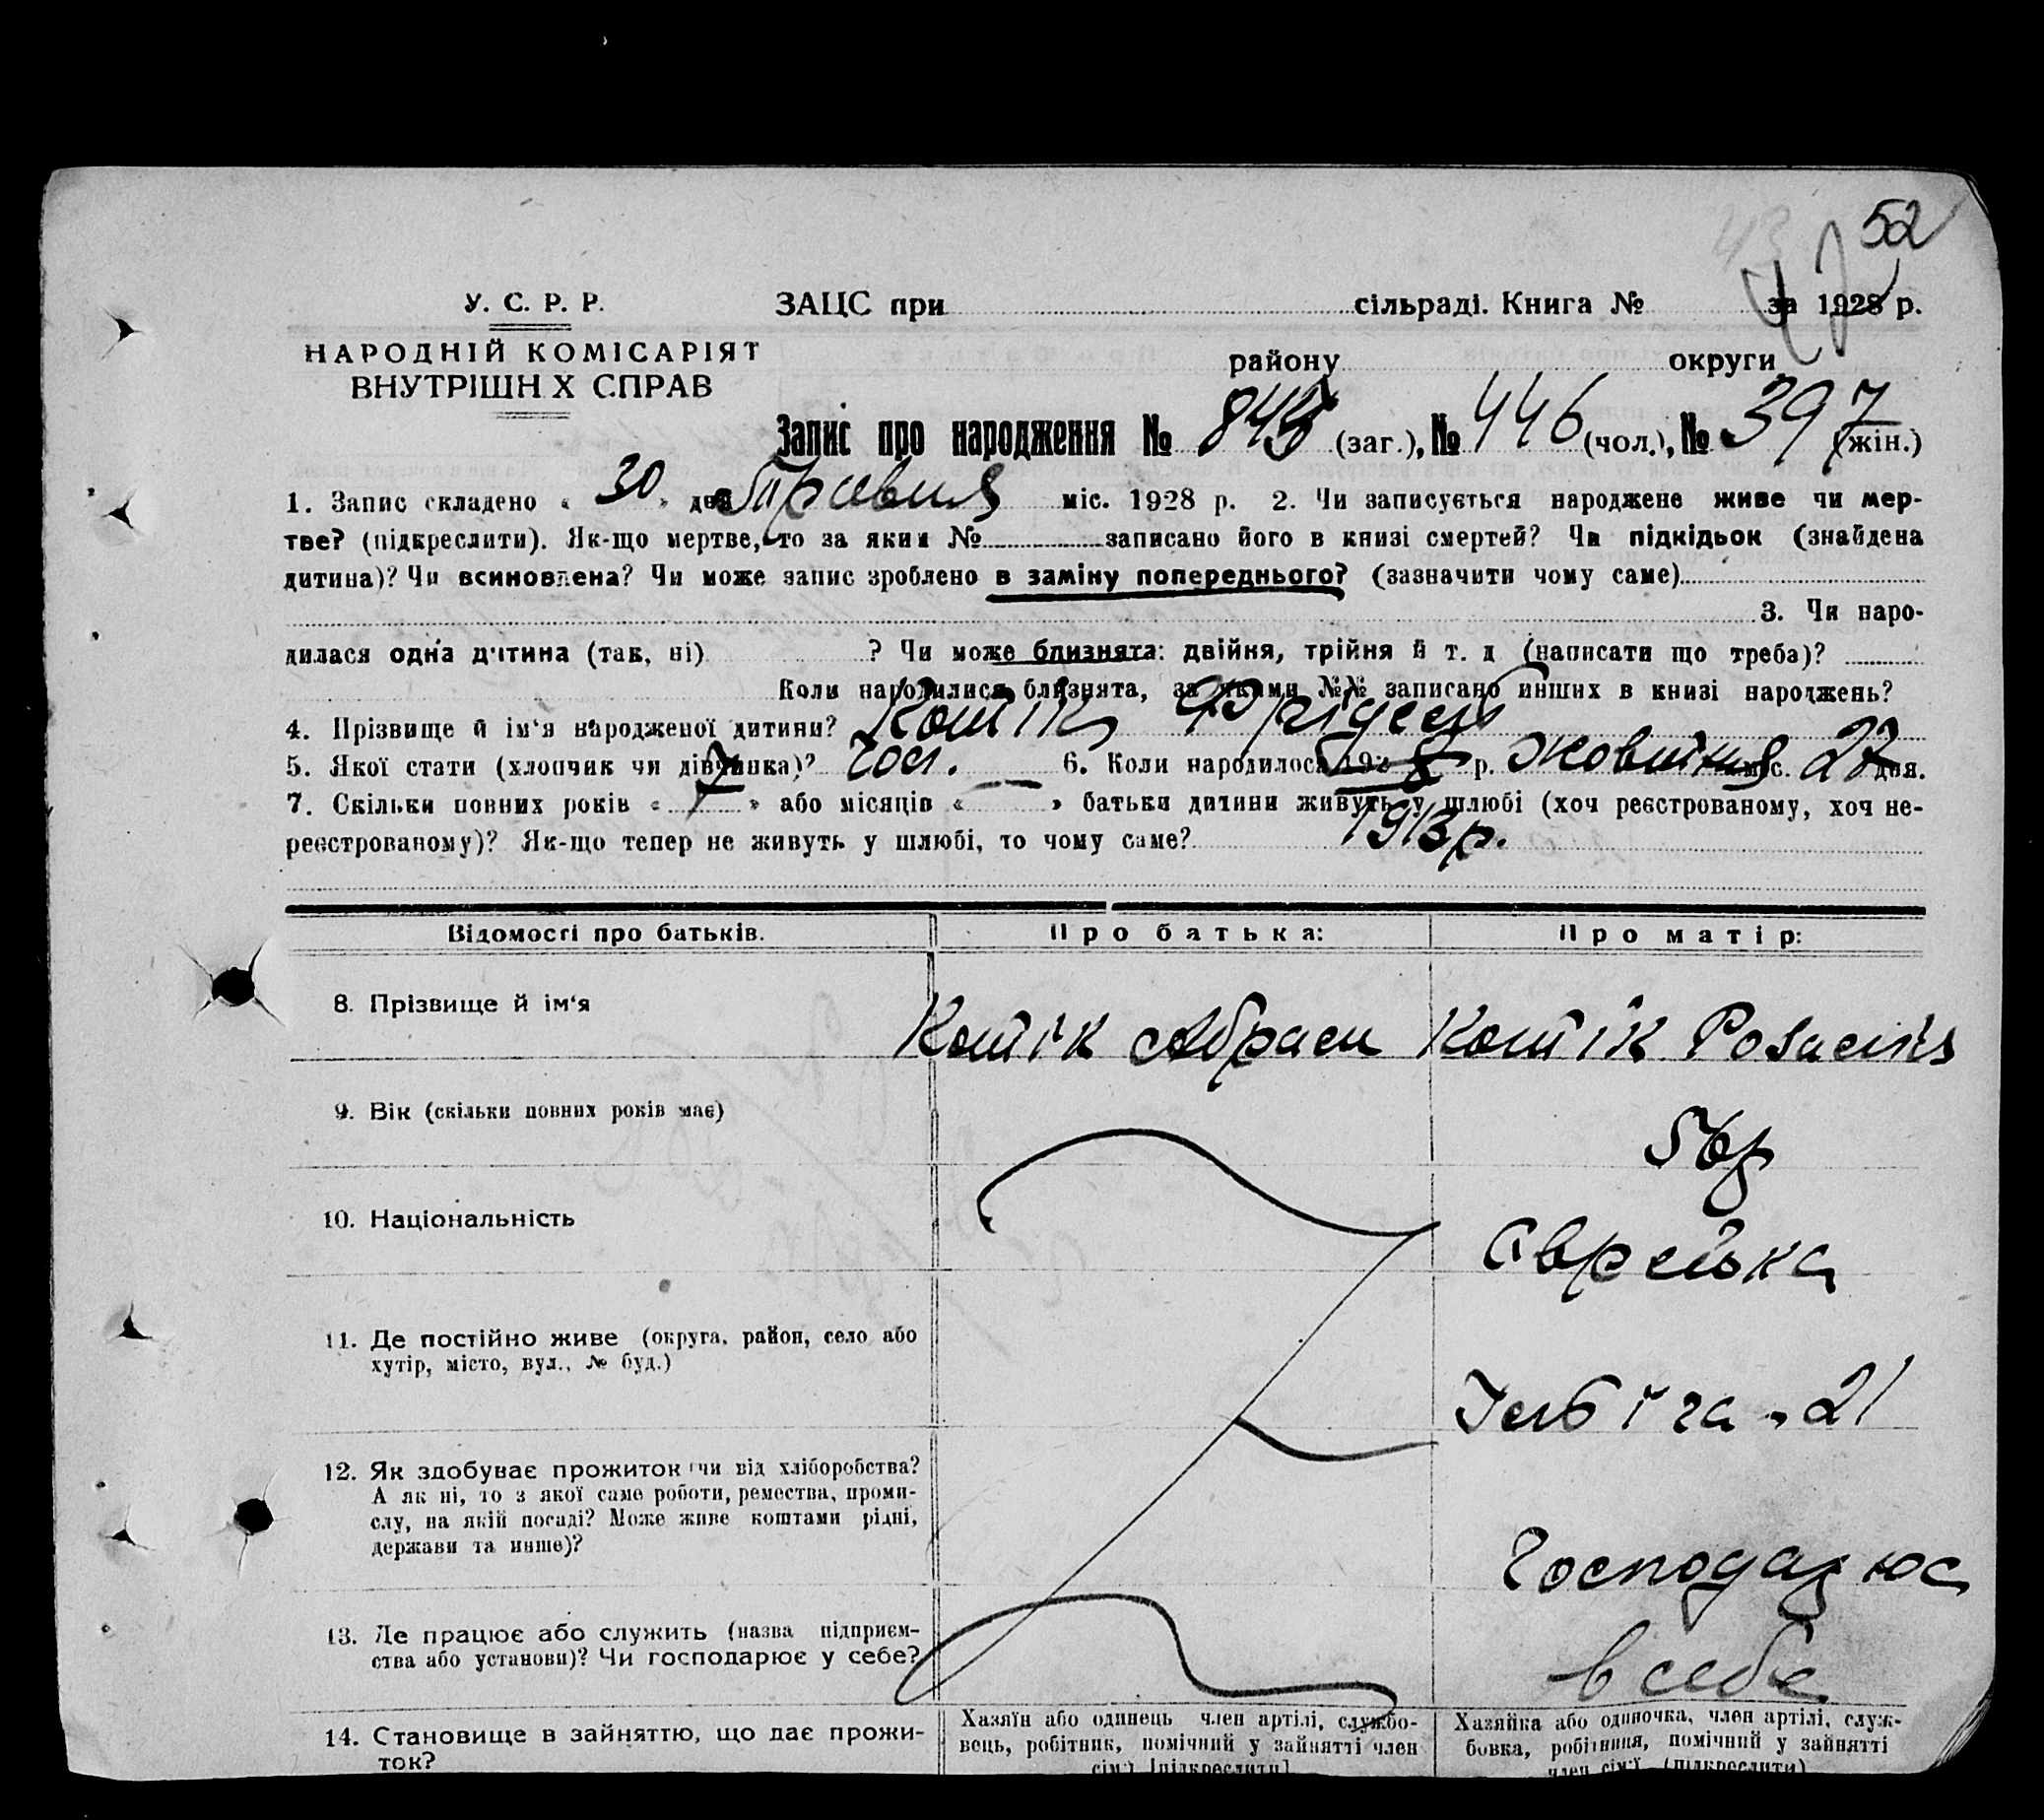 52
У. С. Р. Р.
ЗАЦС при сільраді. Книга № за 1928 р.
НАРОДНІЙ КОМІСАРІЯТ
ВНУТРІШН Х СПРАВ
району округи
Запис про народження № 843 (заг.), № 446 (чол.), № 397 (жін.)
1. Запис складено « 30 » дня Травня міс. 1928 р. 2. Чи записується народжене живе чи мер-
тве? (підкреслити). Як-що мертве, то за яким № записано його в книзі смертей? Чи підкідьок (знайдена
дитина)? Чи всиновлена? Чи може запис зроблено в заміну попереднього? (зазначити чому саме)
3. Чи наро-
дилася одна дитина (так, ні) ? Чи може близнята: двійня, трійня й т. д (написати що треба)?
Коли народилися близнята, за якими №№ записано инших в книзі народжень?
4. Прізвище й ім‘я народженої дитини? Котік Фрідель
5. Якої стати (хлопчик чи дівчинка)? чол. 6. Коли народилося 192 р. Жовтня міс. 27 дня.
7. Скільки повних років « » або місяців « — » батьки дитини живуть у шлюбі (хоч реєстрованому, хоч не-
реєстрованому)? Як-що тепер не живуть у шлюбі, то чому саме? 1913 р.
Відомості про батьків. Про батька: Про матір:
8. Прізвище й ім‘я Котік Абрам Котік Розалія
9. Вік (скільки повних років має)
10. Національність Єврейка
11. Де постійно живе (округа, район, село або
хутір, місто, вул., № буд.)
21
12. Як здобуває прожиток чи від хліборобства?
А як ні, то з якої саме роботи, ремества, проми-
слу, на якій посаді? Може живе коштами рідні,
держави та инше)?
Господарює
13. Де працює або служить (назва підприєм-
ства або установи)? Чи господарює у себе?
в себе
14. Становище в зайняттю, що дає прожи-
ток?
Хазяїн або одинець член артілі, службо-
вець, робітник, помічний у зайнятті член
сім‘ї [підкреслити]
Хазяйка або одиночка, член артілі, служ-
бовка, робітниця, помічний у зайнятті
член сім‘ї. (підкреслити)